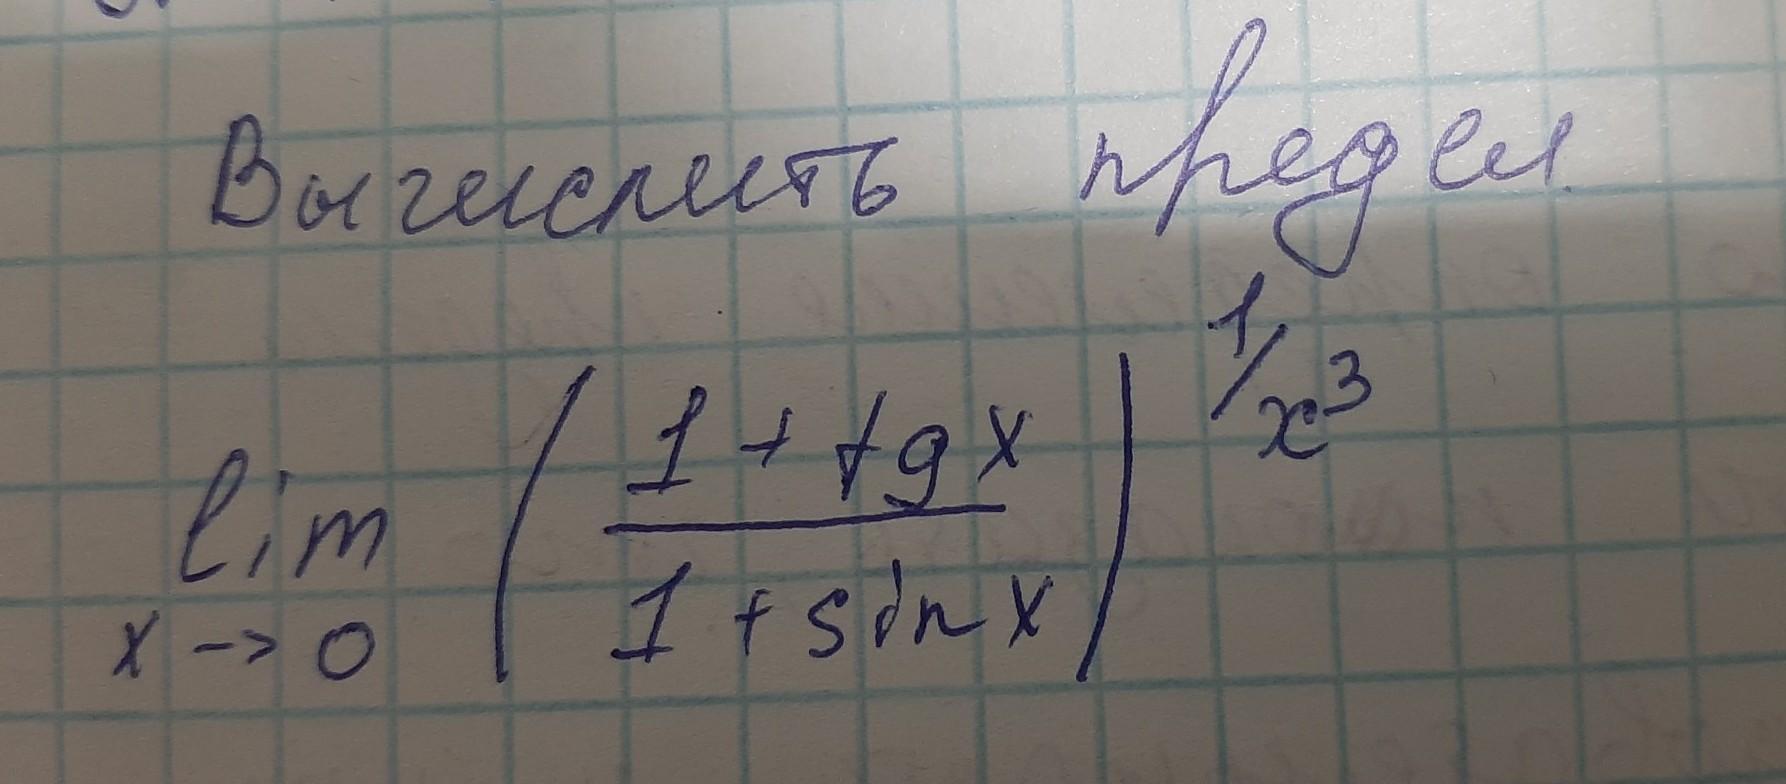 Вычислить предел
lim x -> 0 ( (1 + tg x) / (1 + sin x) )^(1/x^3)